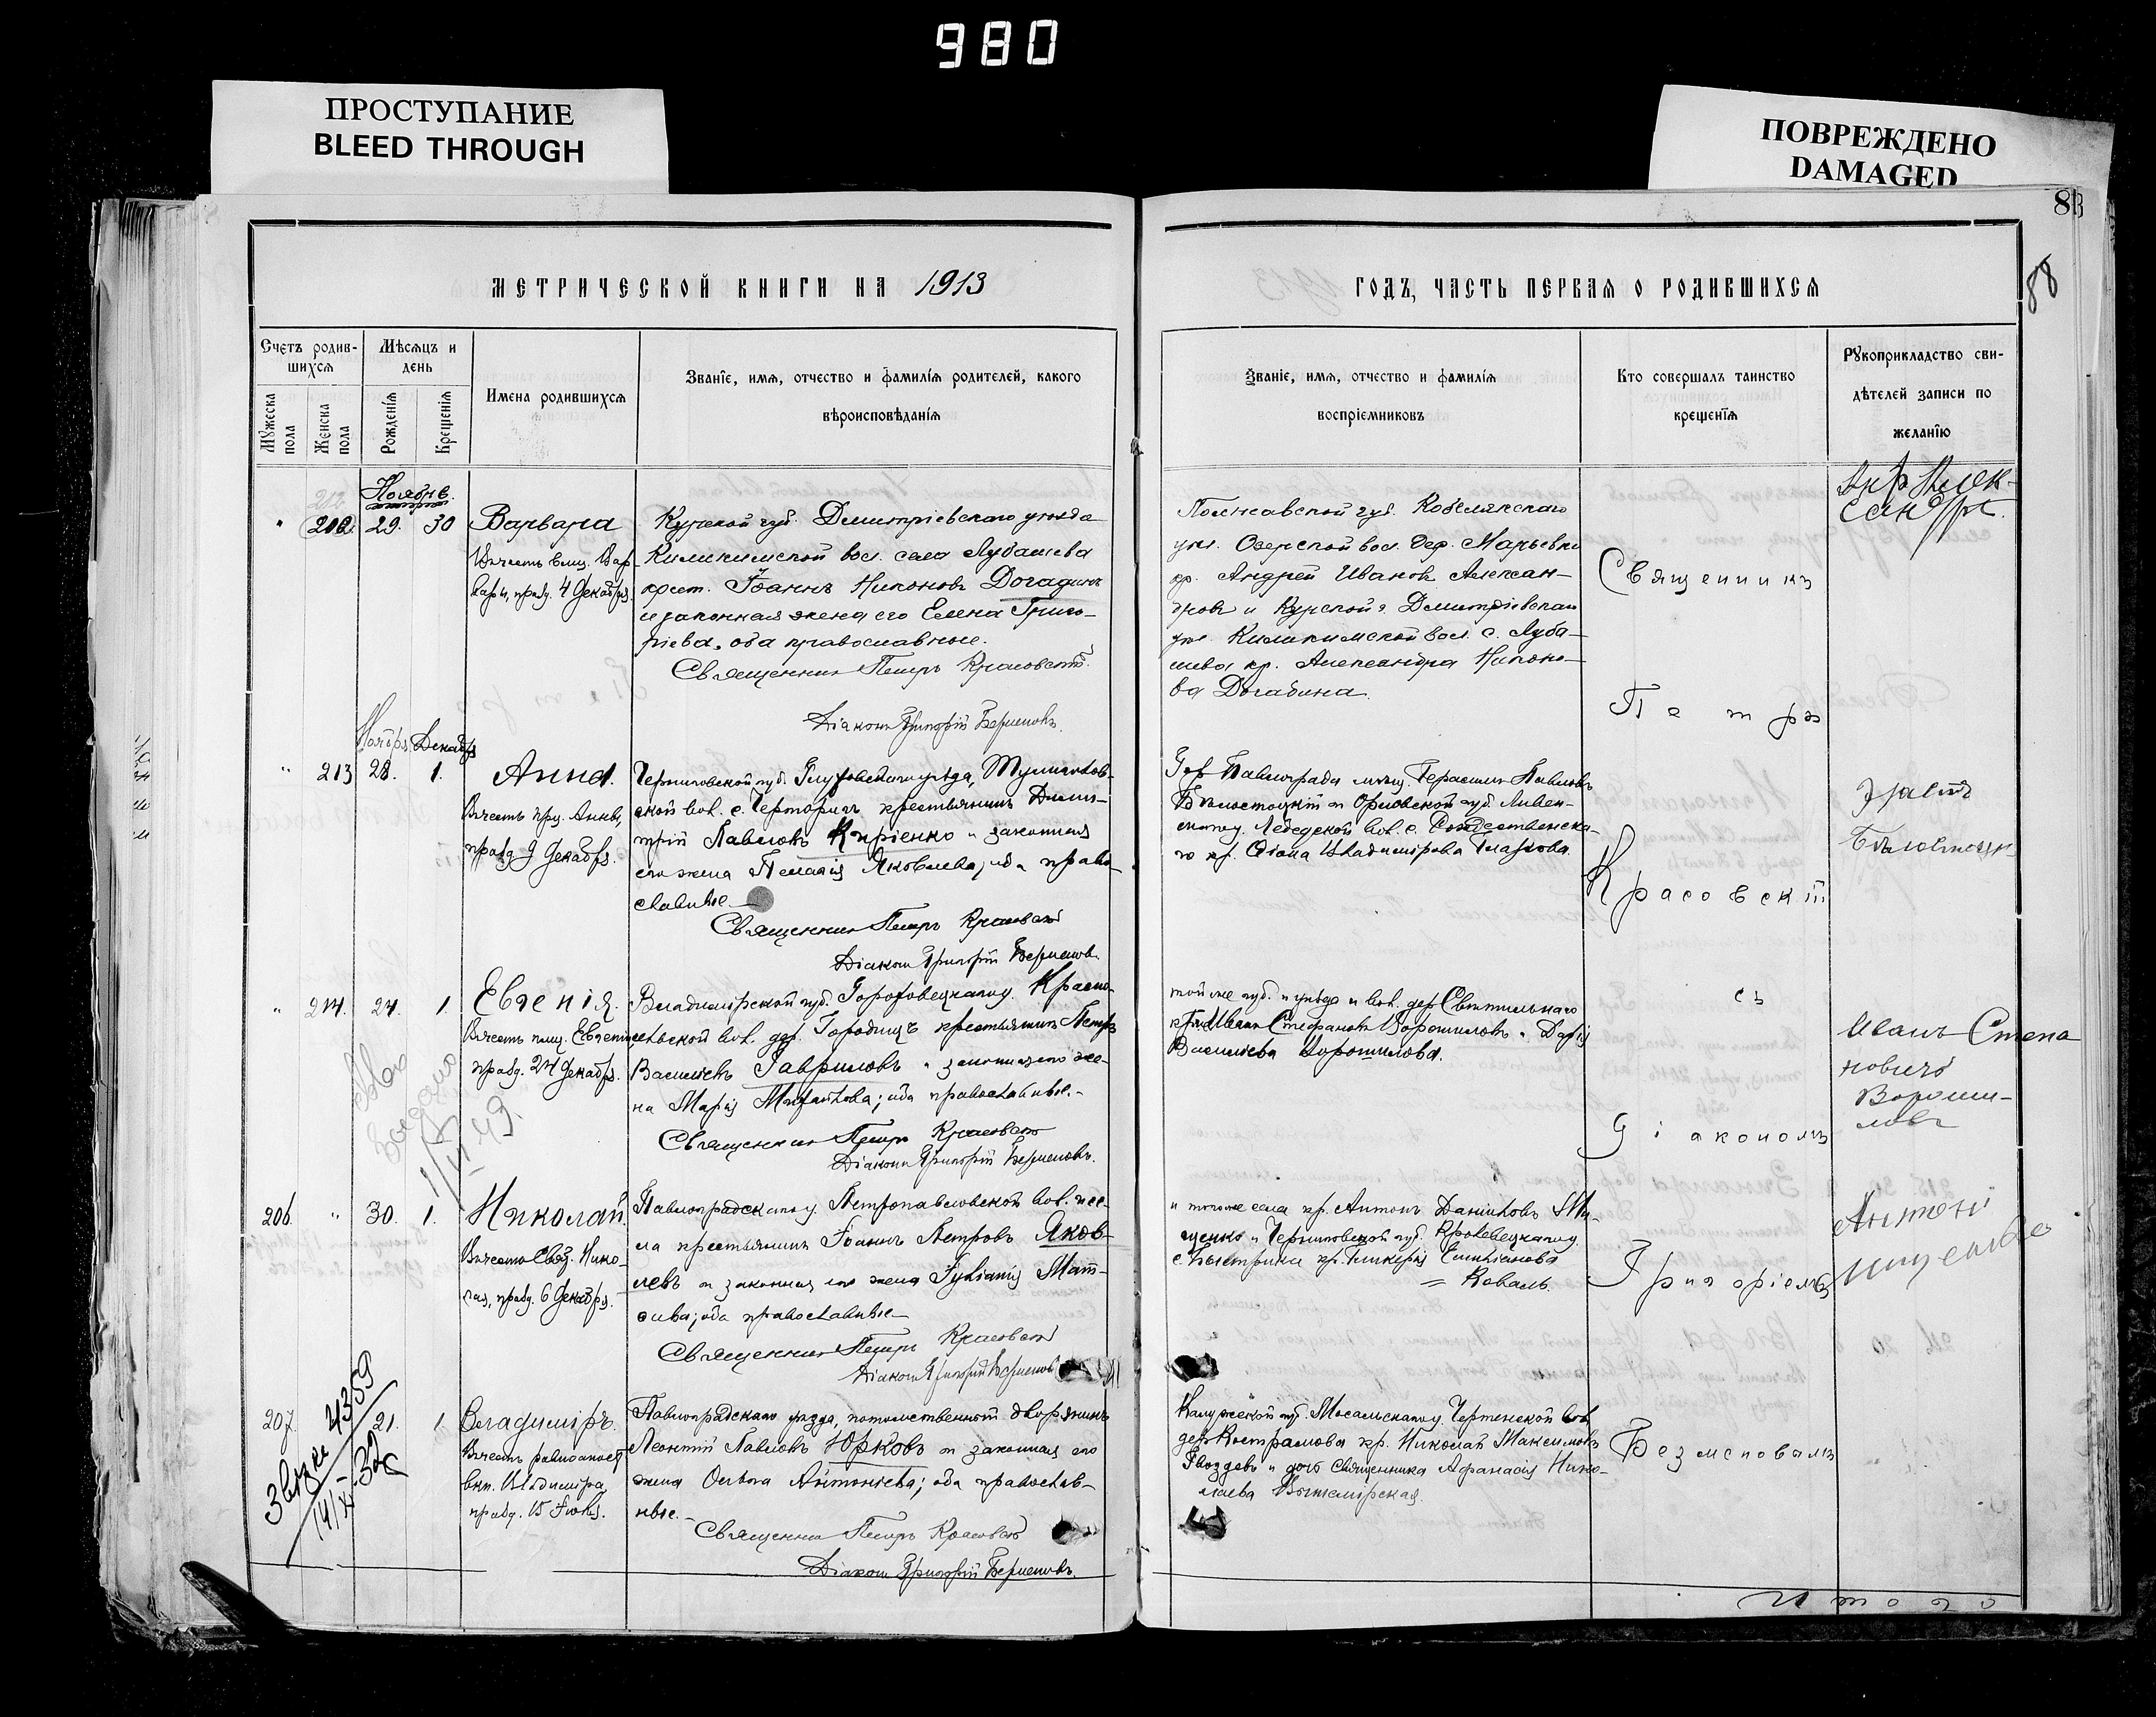 980
ПРОСТУПАНИЕ
BLEED THROUGH
ПОВРЕЖДЕНО
DAMAGED
83
88
МЕТРИЧЕСКОЙ КНИГИ НА 1913
ГОДЪ, ЧАСТЬ ПЕРВАЯ О РОДИВШИХСЯ
Счетъ родив-
шихся
Мѣсяцъ и
день
Мужеска пола
Женска пола
Рожденія
Крещенія
Имена родившихся
Званіе, имя, отчество и фамилія родителей, какого
вѣроисповѣданія
Званіе, имя, отчество и фамилія
воспріемниковъ
Кто совершалъ таинство
крещенія
Рукоприкладство сви-
дѣтелей записи по
желанію
Ноябрь.
212. 29. 30
Варвара
Вчесть вмц. Вар-
вары, празд. 4 Декабря.
Курской губ. Дмитріевскаго уѣзда
вол. села Лубашева
крест. Іоаннъ Никоновъ Догадинъ
и законная жена его Елена Григо-
ріева, оба православные.
Священникъ Петръ Красовскій.
Діаконъ Григорій
Полтавской губ. Кобелякскаго
уѣз. Озерской вол. дер. Марьевки
кр. Андрей Ивановъ Алексан-
дровъ и Курской г. Дмитріевскаго
уѣз. вол. с. Луба-
шева кр. Александра Никоно-
ва Догадина.
Священникъ
Ноябрь Декабрь
213 28. 1.
Анна.
Вчесть прц. Анны,
празд 9 Декабря.
Черниговской губ. Глуховскаго уѣзда, Тулиголов-
ской вол. с. Черторигъ крестьянинъ Дими-
трій Павловъ Кириенко и законная
его жена Пелагія Яковлева; оба право-
славные.
Священникъ Петръ Красовскій
Діаконъ Григорій
Гор Павлограда мѣщ. Герасимъ Павловъ
Бѣлостоцкій и Орловской губ. Ливен-
скаго у. вол. с. Рождественска-
го кр. Владимірова Глазкова
Петръ
Красовскій
214. 24. 1.
Евгенія.
Вчесть пмц. Евгеніи,
празд. 24 Декабря.
Владимірской губ. Гороховецкаго у. Красно-
сельской вол. дер. Городищъ крестьянинъ Петръ
Васильевъ Гавриловъ и законная его же-
на Марія Михайлова; оба православные.
Священникъ Петръ Красовскій
Діаконъ Григорій
той же губ. и уѣзда и вол. дер Свѣтильнаго
кр. Иванъ Стефановъ Ворошиловъ и Дарія
Васильева Ворошилова.
съ
Діакономъ
Иванъ Степа
новичъ
Вороши-
ловъ
206. 30. 1.
Николай.
Вчесть Свят. Нико-
лая, празд. 6 Декабря.
Павлоградскаго у. Петропавловской вол. и се-
ла крестьянинъ Іоаннъ Петровъ Яков-
левъ и законная его жена Іуліанія Матѳ-
ѳиева; оба православные
Священникъ Петръ Красовскій
Діаконъ Григорій
и того же села кр. Антонъ Даниловъ Ми-
щенко и Черниговской губ. Кролевецкаго у.
с. Быстрика кр. Гликерія
Коваль.
Григоріемъ
Антонъ
Мищенко
207. 21. 1.
Владиміръ.
Вчесть равноапост
вкн. Владиміра
празд. 15 Іюля.
Павлоградскаго уѣзда, потомственный дворянинъ
Леонтій Павловъ Юрковъ и законная его
жена Антоніева; оба православ-
ные.
Священникъ Петръ Красовскій
Діаконъ Григорій
Калужской губ. Мосальскаго у. вол.
дер. кр. Николай Максимовъ
Гвоздевъ и дочь священника Афанасія Нико-
лаева
Итого